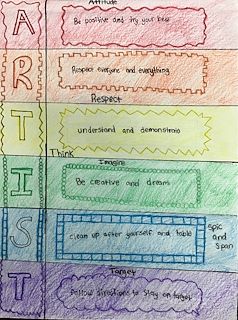 Attitude
A
Be positive and try your best
R
Respect everyone and everything
Respect
T
understand and demonstrate
Think
Imagine
I
Be creative and dream
S
clean up after yourself and table
Spic and Span
Target
T
Follow directions to stay on target